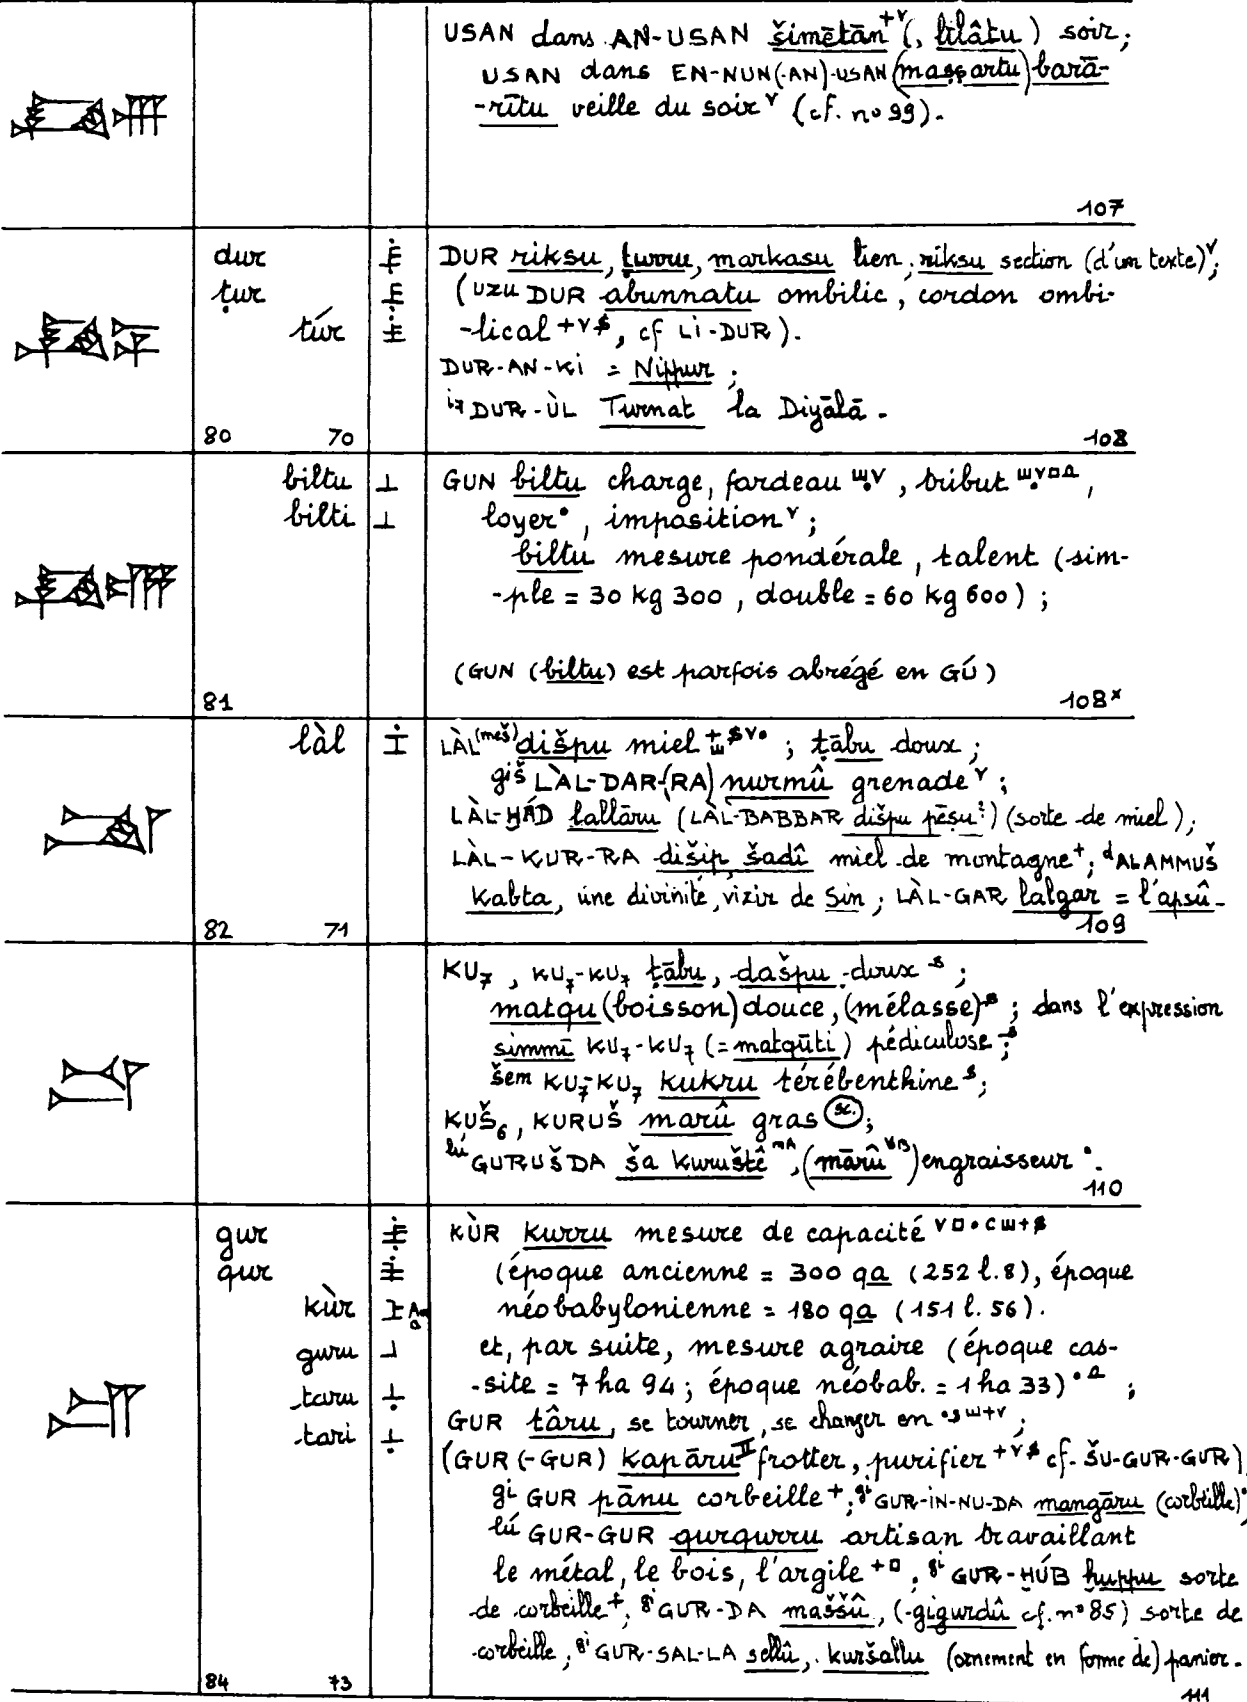 USAN dans AN-USAN šimētān⁺ᵛ (, lilâtu) soir ;
USAN dans EN-NUN(-AN)-USAN (maṣṣartu) barā-
-rītu veille du soir ᵛ (cf. nº 99).
107
dur
ṭur
túr
80 70
DUR riksu, ṭurru, markasu lien ; riksu section (d'un texte)ᵛ ;
(uzu DUR abunnatu ombilic, cordon ombi-
-lical ⁺ᵛ$, cf LI-DUR).
DUR-AN-KI = Nippur ;
i₇ DUR-ÙL Turnat la Diyālā.
108
biltu
bilti
81
GUN biltu charge, fardeau, tribut,
loyer•, imposition ᵛ ;
biltu mesure pondérale, talent (sim-
-ple = 30 kg 300, double = 60 kg 600) ;
(GUN (biltu) est parfois abrégé en GÚ)
108ˣ
làl
82 71
LÀL(meš) dišpu miel ; ṭābu doux ;
giš LÀL-DAR-(RA) nurmû grenade ᵛ ;
LÀL-ḪÁD lallāru (LÀL-BABBAR dišpu pēṣu?) (sorte de miel) ;
LÀL-KUR-RA dišip šadî miel de montagne⁺ ; ᵈALAMMUŠ
Kabta, une divinité, vizir de Sin ; LÀL-GAR lalgar = l'apsû.
109
KU₇, KU₇-KU₇ ṭābu, dašpu doux ;
matqu (boisson) douce, (mélasse) ; dans l'expression
simmī KU₇-KU₇ (= matqūti) pédiculose ;
šem KU₇-KU₇ kukru térébenthine ;
KUŠ₆, KURUŠ marû gras (sc.) ;
lú GURUŠDA ša kuruštê ᵐᴬ, (mārû ᴺᴮ) engraisseur •.
110
gur
qur
kùr
guru
taru
tari
84 73
KÙR kurru mesure de capacité
(époque ancienne = 300 qa (252 l. 8), époque
néobabylonienne = 180 qa (151 l. 56).
et, par suite, mesure agraire (époque cas-
-site = 7 ha 94 ; époque néobab. = 1 ha 33) ;
GUR târu, se tourner, se changer en ;
(GUR(-GUR) kapāru II frotter, purifier ⁺ᵛ$ cf. ŠU-GUR-GUR)
gi GUR pānu corbeille⁺ ; gi GUR-IN-NU-DA mangāru (corbeille)•,
lú GUR-GUR qurqurru artisan travaillant
le métal, le bois, l'argile ; gi GUR-ḪÚB ḫuppu sorte
de corbeille⁺ ; gi GUR-DA maššû, (gigurdû cf. nº 85) sorte de
corbeille ; gi GUR-SAL-LA sellû, kuršallu (ornement en forme de) panier.
111